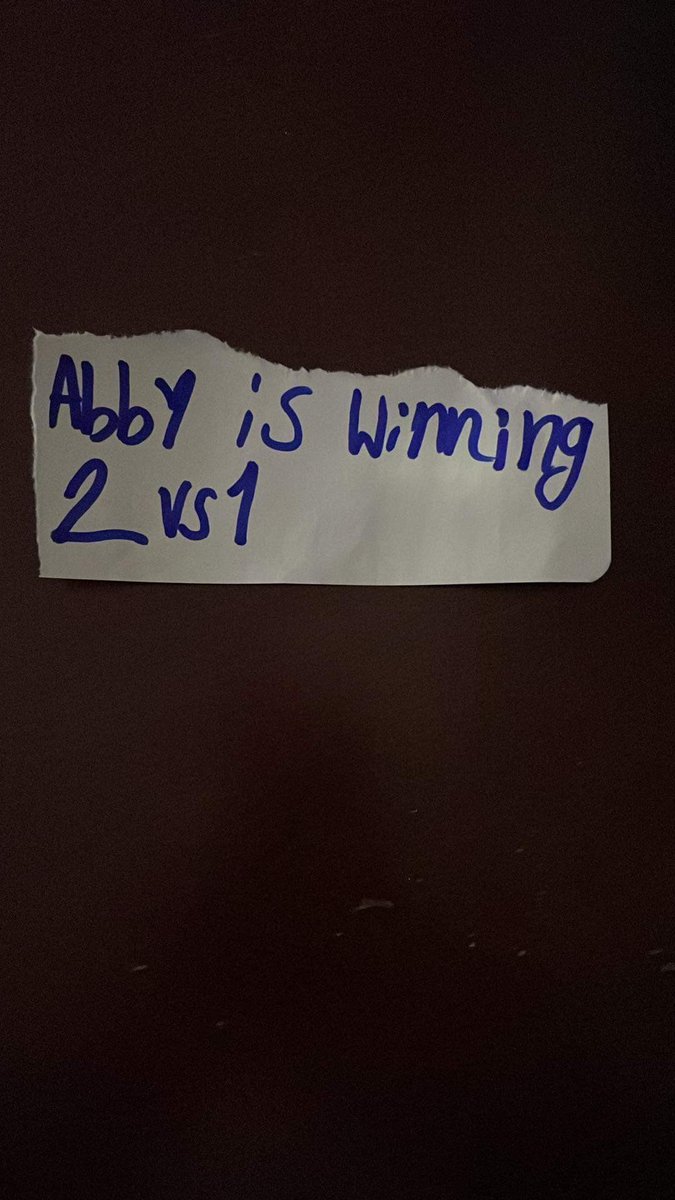 Abby is Winning
2 vs 1